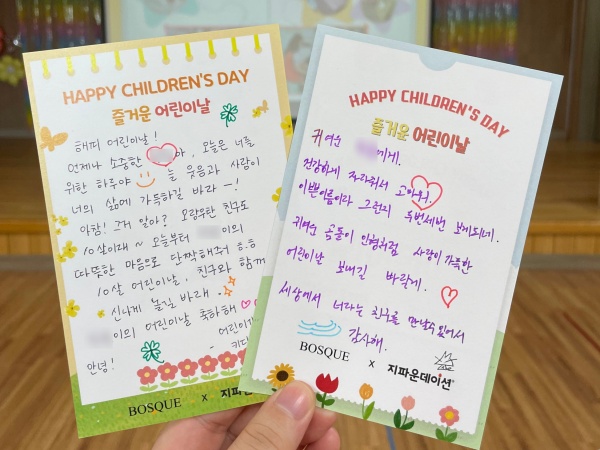 HAPPY CHILDREN'S DAY
즐거운 어린이날
해피 어린이날!
언제나 소중한 아, 오늘은 너를
위한 하루야 늘 웃음과 사랑이
너의 삶에 가득하길 바라 ~!
아참! 그거 알아? 모랑모란 친구도
10살이래 ~ 오늘부터 이의
따뜻한 마음으로 단짝해줘 ㅎ.ㅎ
10살 어린이날, 친구와 함께
신나게 놀길 바래.
이의 어린이날 축하해
안녕!
- 어린이
BOSQUE x 지파운
HAPPY CHILDREN'S DAY
즐거운 어린이날
귀여운 에게.
건강하게 자라줘서 고마워.
이쁜이름이라 그런지 두번세번 보게되네.
귀여운 곰돌이 인형처럼 사랑이 가득한
어린이날 보내길 바랄게.
세상에서 너라는 친구를 만날수있어서
감사해.
BOSQUE x 지파운데이션